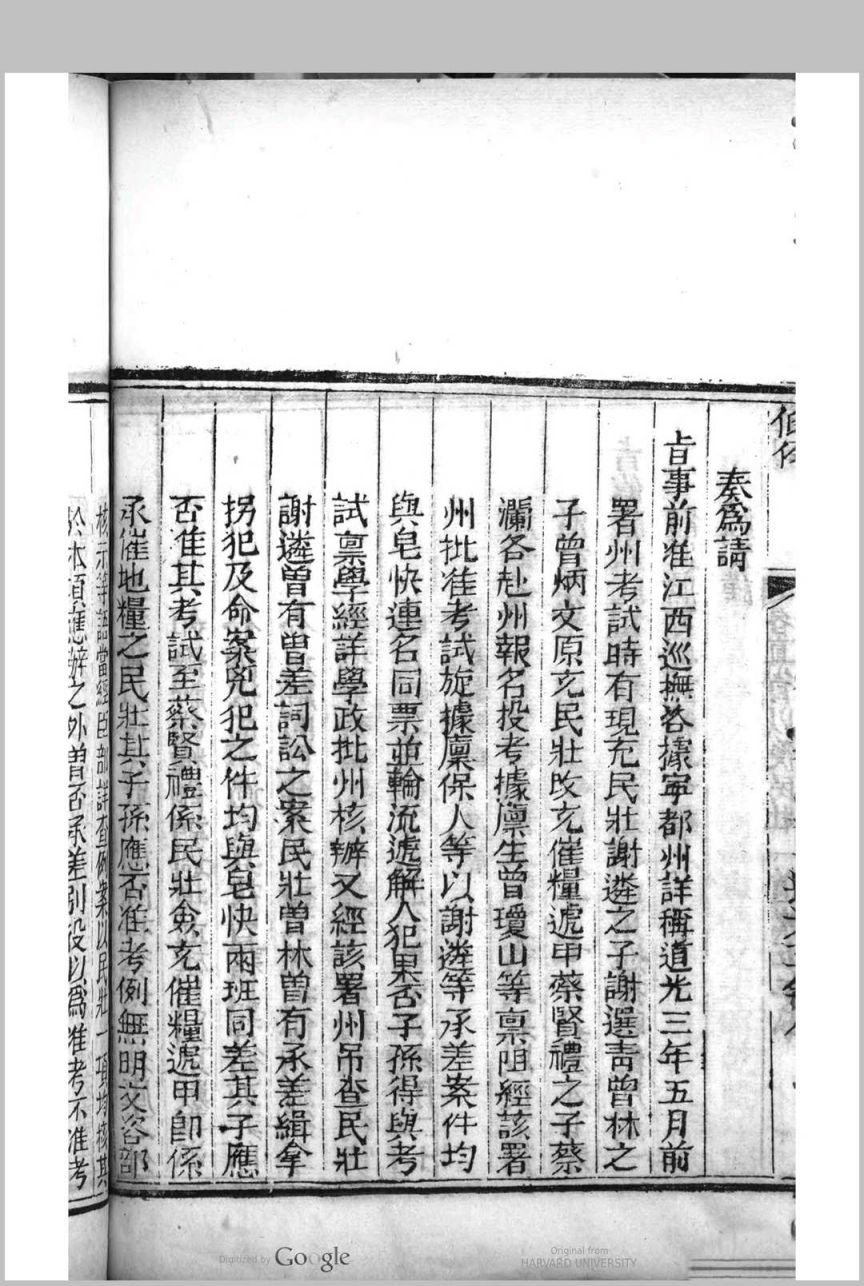 奏爲請
旨事前准江西巡撫咨據寧都州詳稱道光三年五月前
署州考試時有現充民壯謝遴之子謝選青曾林之
子曾炳文原充民壯改充催糧遞甲蔡賢禮之子蔡
瀾各赴州報名投考據廩生曾瓊山等禀阻經該署
州批准考試旋據廩保人等以謝遴等承差案件均
與皂快連名同票並輪流遞解人犯果否子孫得與考
試禀學經詳學政批州核辦又經該署州吊查民壯
謝遴曾有曾差詞訟之案民壯曾林曾有承差緝拿
拐犯及命案兇犯之件均與皂快兩班同差其子應
否准其考試至蔡賢禮係民壯僉充催糧遞甲卽係
承催地糧之民壯其子孫應否准考例無明文咨部
核示等語當經臣部詳查例案以民壯一項均核其
於本項應辦之外曾否承差別役以爲准考不准考
Digitized by Google
Original from
HARVARD UNIVERSITY